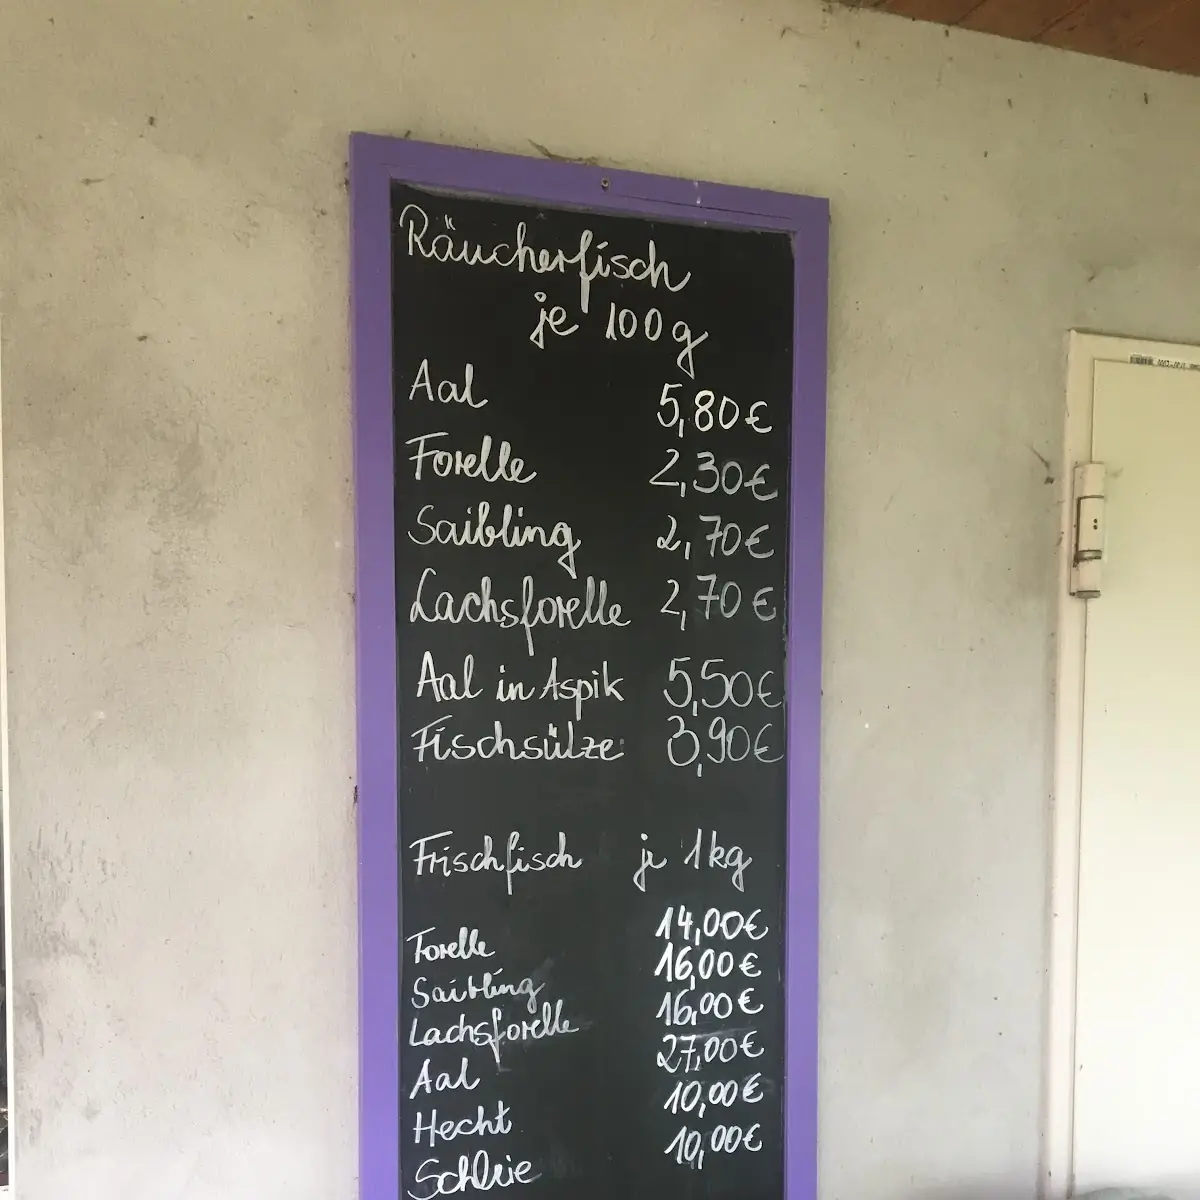 Räucherfisch
je 100g
Aal 5,80€
Forelle 2,30€
Saibling 2,70€
Lachsforelle 2,70€
Aal in Aspik 5,50€
Fischsülze 3,90€
Frischfisch je 1kg
Forelle 14,00€
Saibling 16,00€
Lachsforelle 16,00€
Aal 27,00€
Hecht 10,00€
Schleie 10,00€